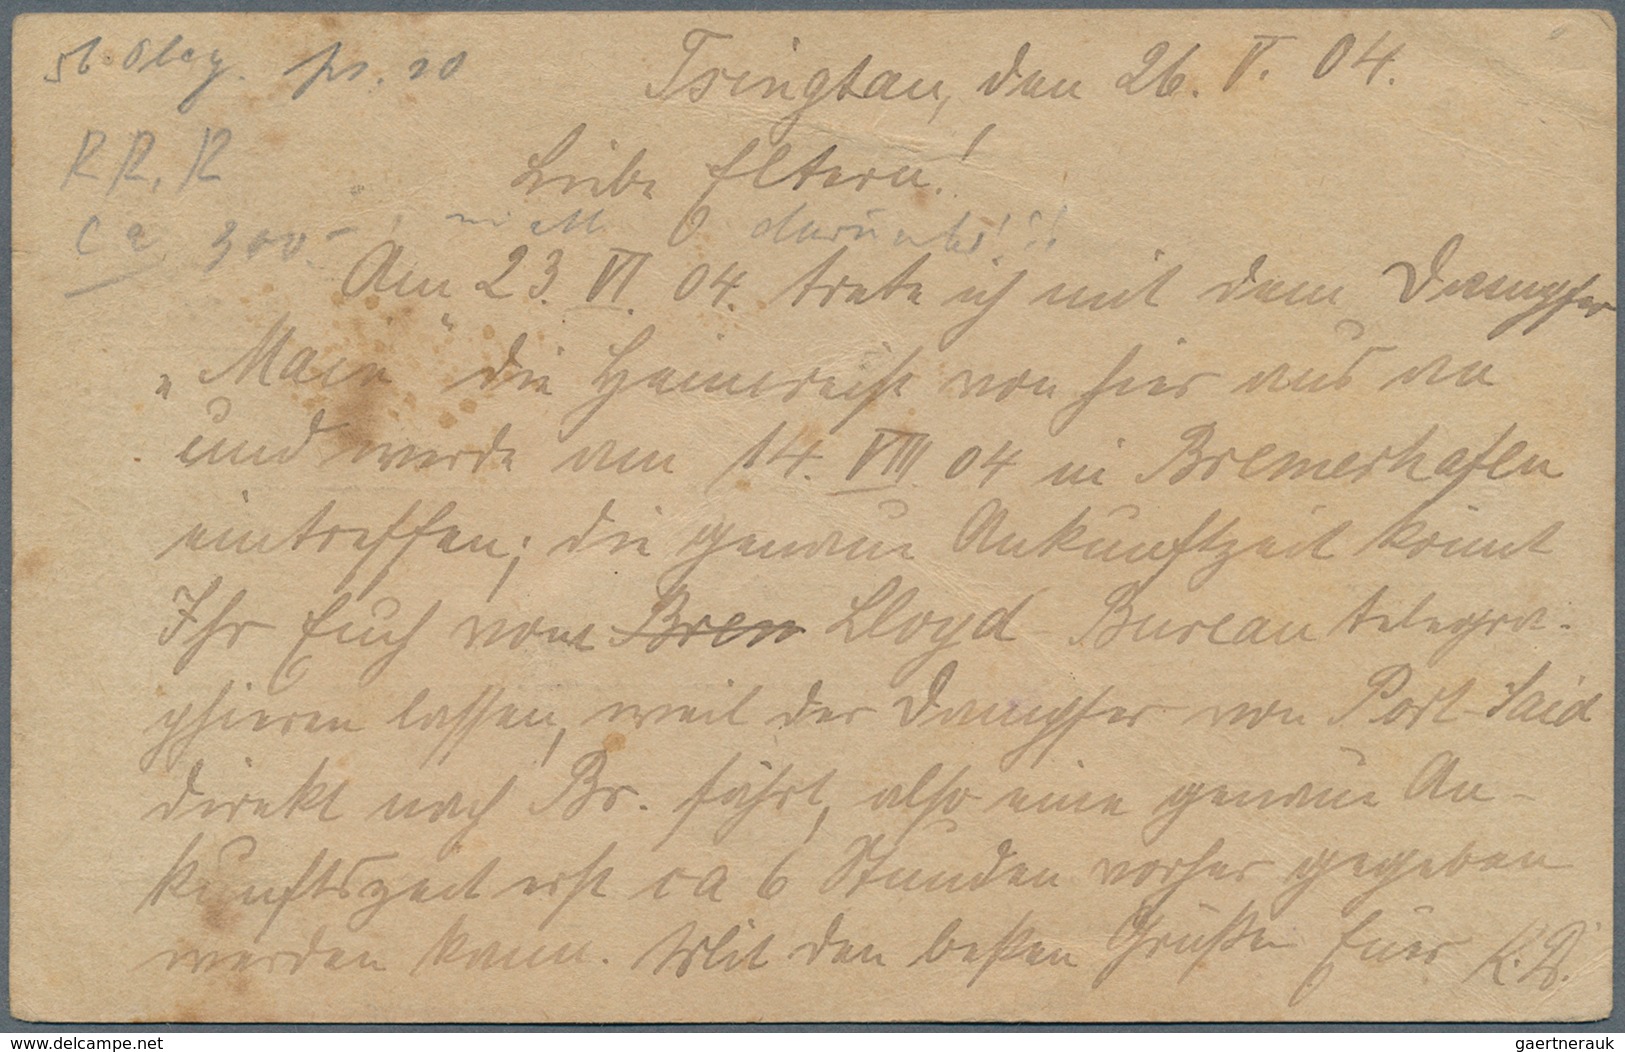 Tsingtau, den 26. V. 04.
RR, R
Liebe Eltern!
ca 300.-
Am 23. VI. 04. trete ich mit dem Dampfer
„Main“ die Heimreise von hier aus an
und werde am 14. VIII. 04 in Bremerhafen
eintreffen; die genaue Ankunftzeit könnt
Ihr Euch vom Brem Lloyd-Bureau telegra-
phieren lassen, weil der Dampfer von Port-Said
direkt nach Br. fährt, also eine genaue An-
kunftszeit erst ca 6 Stunden vorher gegeben
werden kann. Mit den besten Grüßen Euer K. D.
www.delcampe.net
gaertnerauk